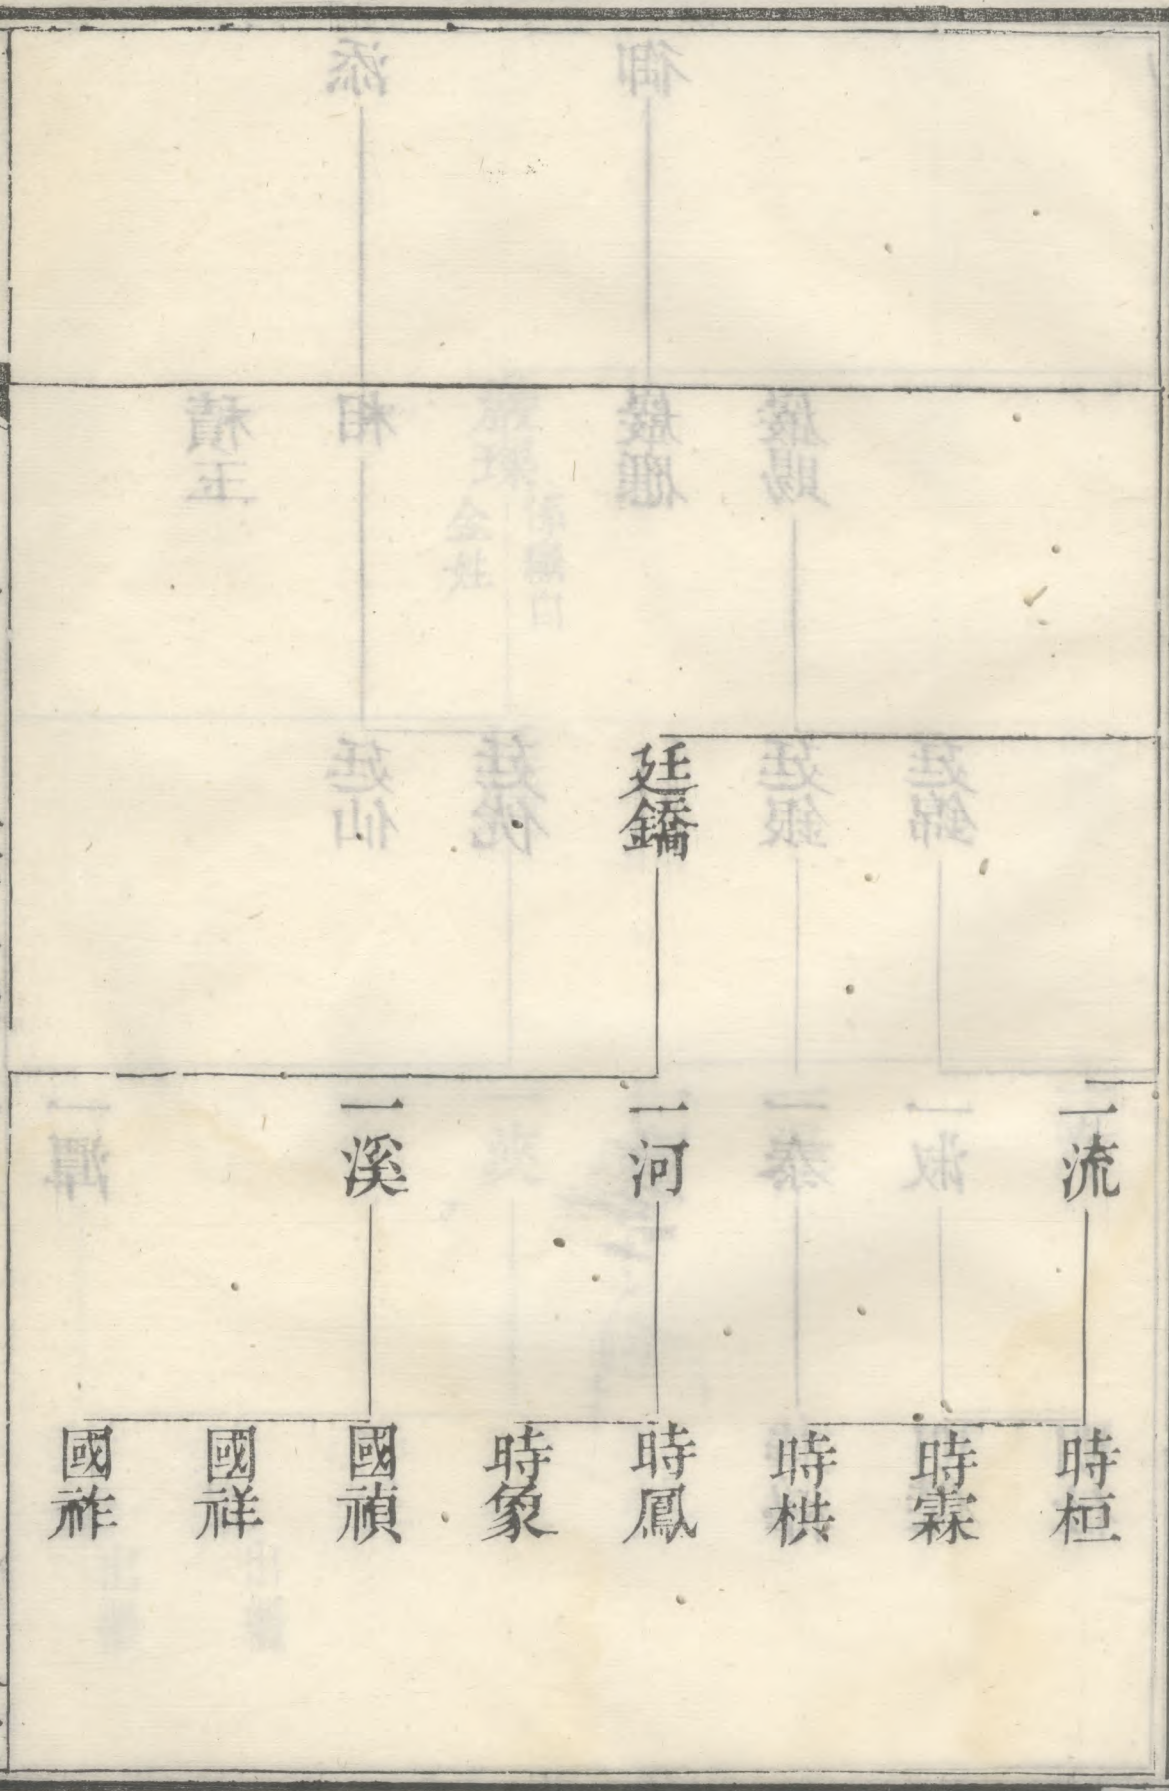 廷鐈
一流
一河
一溪
時桓
時霖
時栱
時鳳
時象
國禎
國祥
國祚